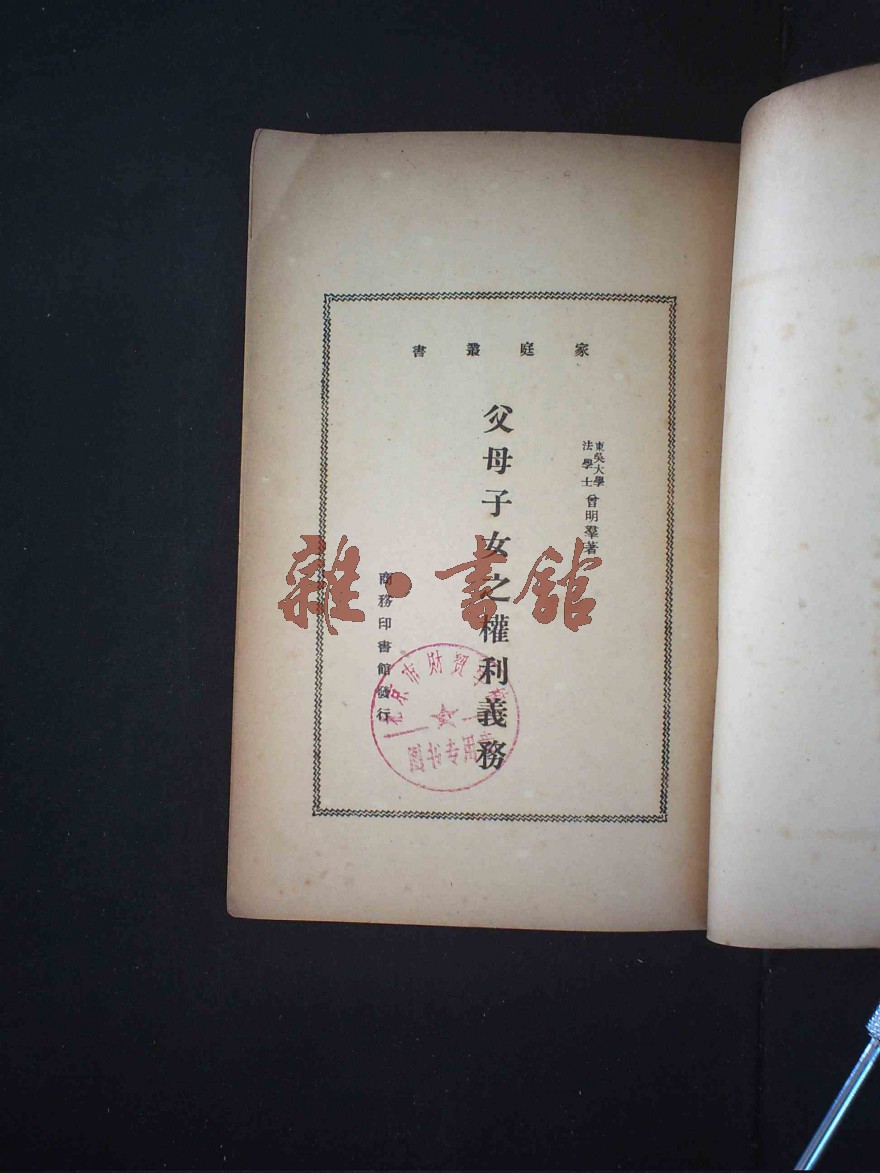 家庭叢書
東吳大學
法學士
曾明羣著
父母子女之權利義務
商務印書館發行
雜·書館
北京市财贸
图书专用章